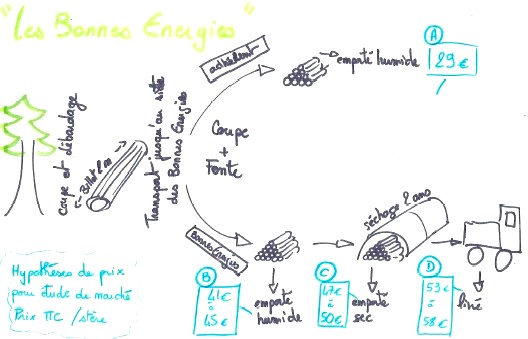 "Les Bonnes Energies"
adhérent
emporté humide
A
29€
Coupe et débardage
Billot 2 m
Transport jusqu'au site
des Bonnes Energies
Coupe
+
Fente
séchage 2 ans
Bonnes Energies
Hypothèses de prix
pour étude de marché
Prix TTC /stère
B
41€
à
45€
emporté
humide
C
47€
à
50€
emporté
sec
D
53€
à
58€
livré